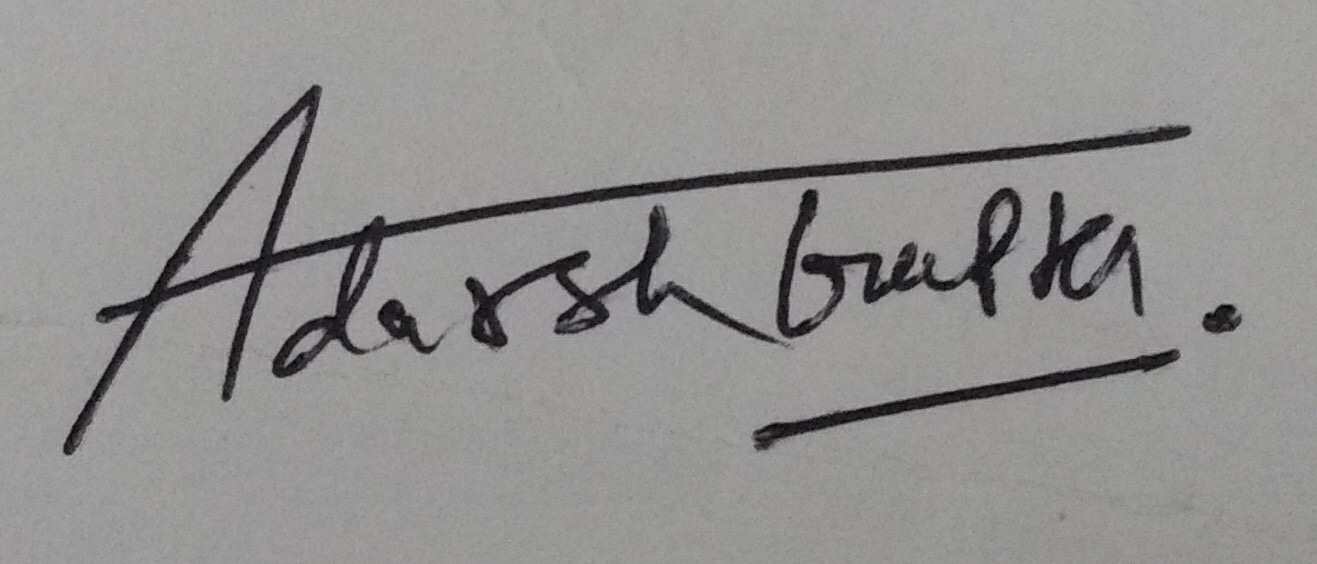 Adarsh Gupta.